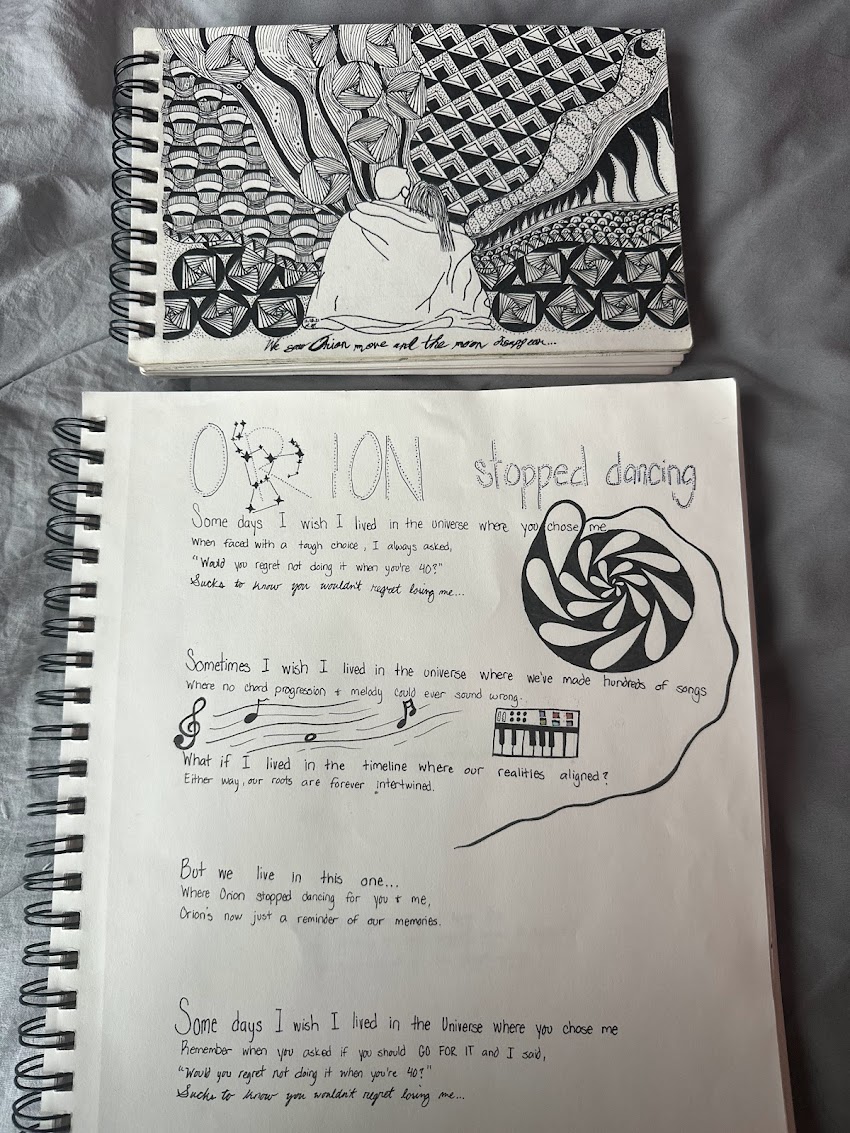 We saw Orion move and the moon disappear...
ORION stopped dancing
Some days I wish I lived in the universe where you chose me
When faced with a tough choice, I always asked,
"Would you regret not doing it when you're 40?"
Sucks to know you wouldn't regret losing me...
Sometimes I wish I lived in the universe where we've made hundreds of songs
Where no chord progression + melody could ever sound wrong.
What if I lived in the timeline where our realities aligned?
Either way, our roots are forever intertwined.
But we live in this one...
Where Orion stopped dancing for you + me,
Orion's now just a reminder of our memories.
Some days I wish I lived in the Universe where you chose me
Remember when you asked if you should GO FOR IT and I said,
"Would you regret not doing it when you're 40?"
Sucks to know you wouldn't regret losing me...